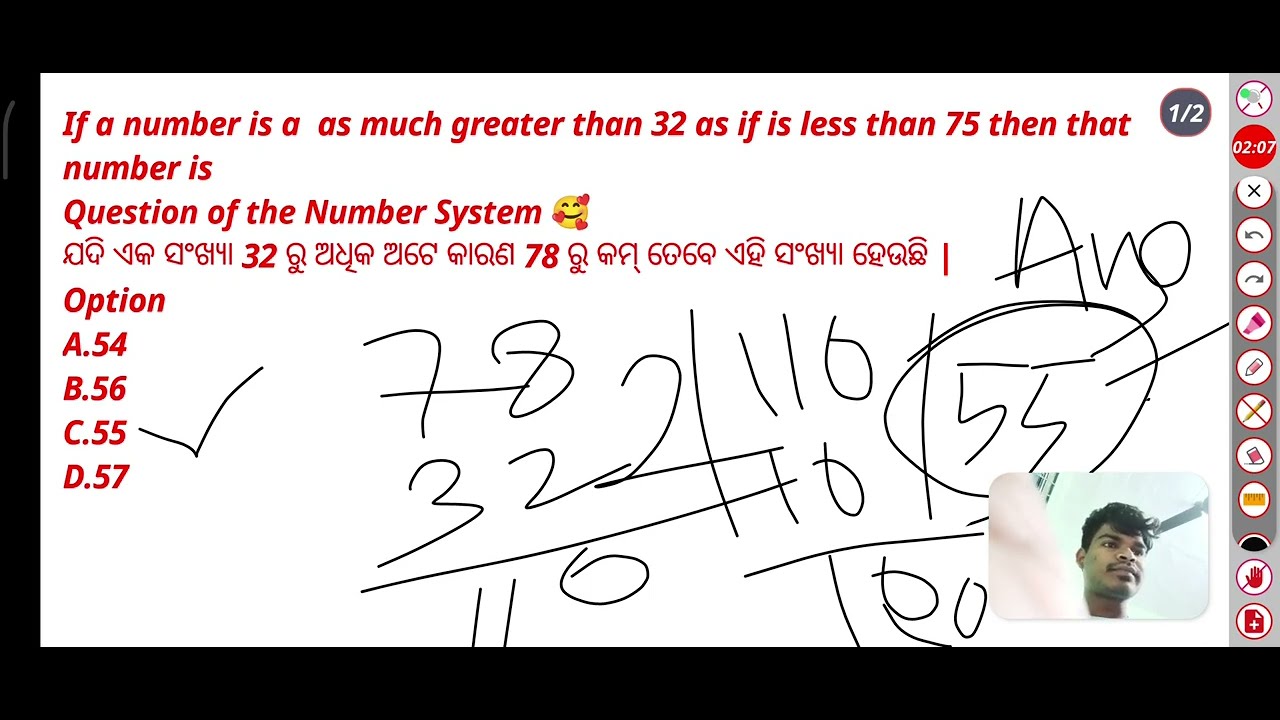 If a number is a as much greater than 32 as if is less than 75 then that
number is
Question of the Number System 🥰
ଯଦି ଏକ ସଂଖ୍ୟା 32 ରୁ ଅଧିକ ଅଟେ କାରଣ 78 ରୁ କମ୍ ତେବେ ଏହି ସଂଖ୍ୟା ହେଉଛି |
Option
A.54
B.56
C.55
D.57
1/2
02:07
Ans
78
32
110
2
110
10
55